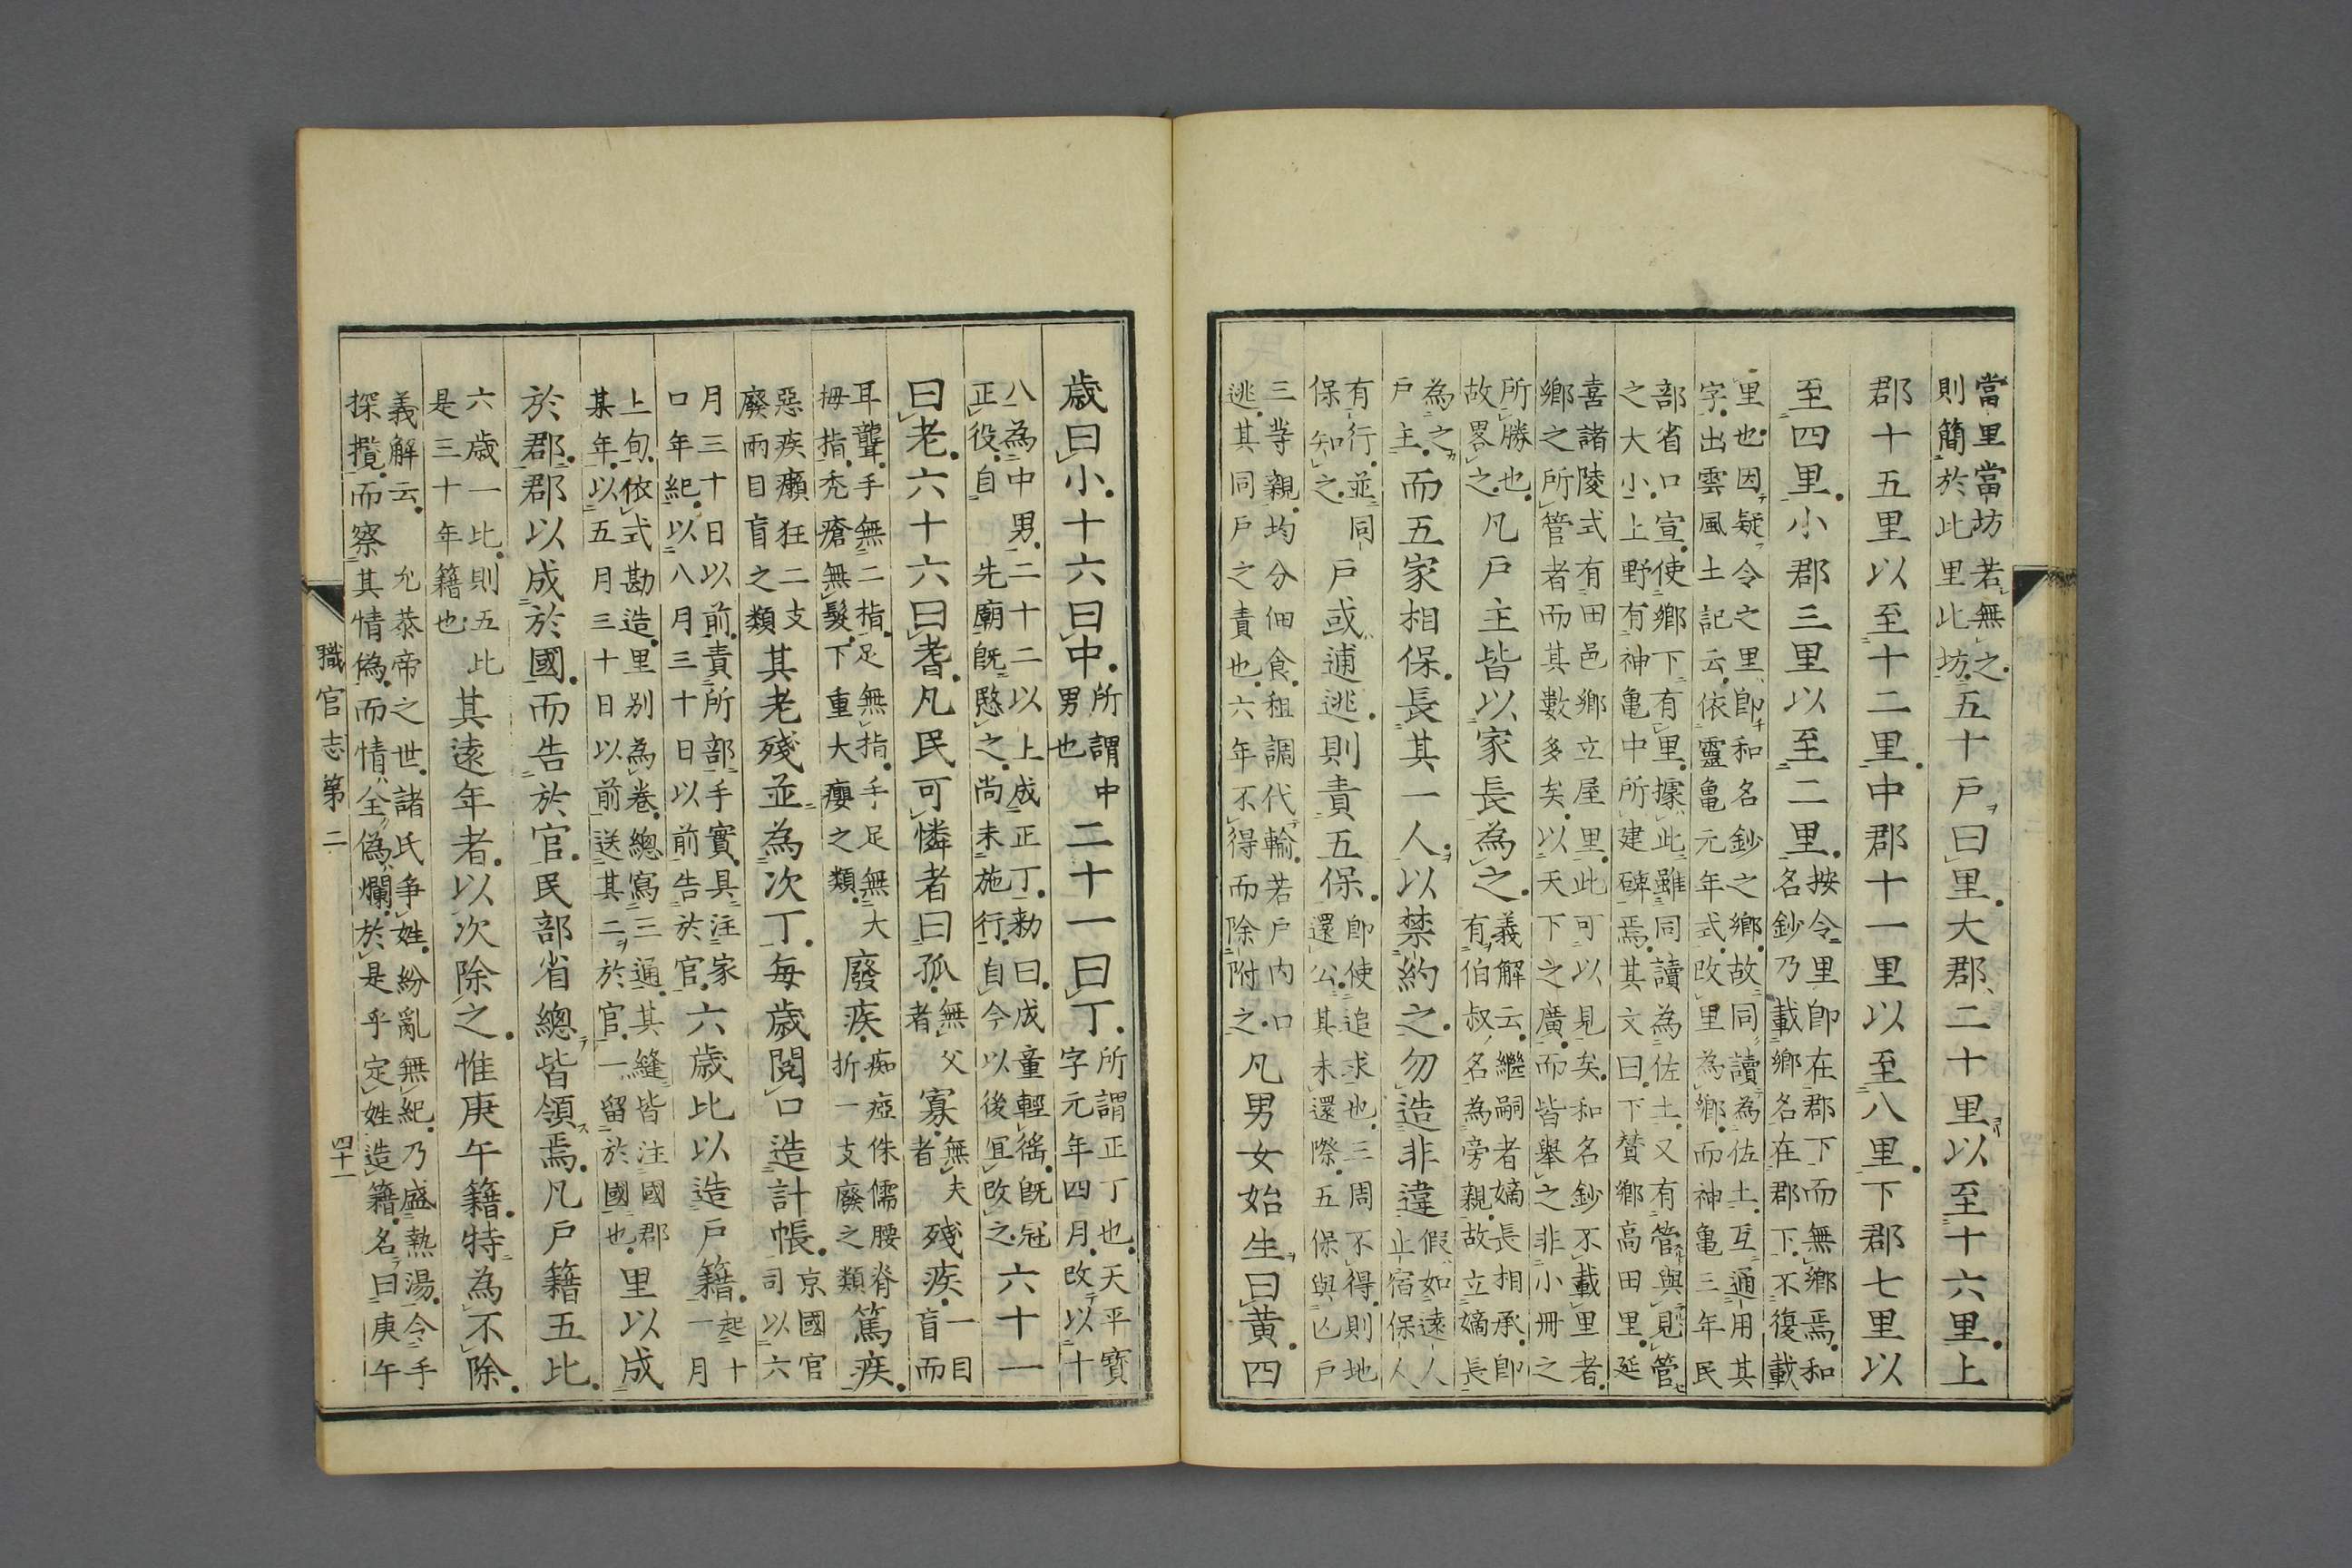 當里當坊若無之
則簡於此里此坊五十戸曰里大郡二十里以至十六里上
郡十五里以至十二里中郡十一里以至八里下郡七里以
至四里小郡三里以至二里按令里卽在郡下而無鄉焉和
名鈔乃載鄉名在郡下不復載
里也因疑令之里卽和名鈔之鄉故同讀為佐土互通用其
字出雲風土記云依靈亀元年式改里為鄉而神亀三年民
部省口宣使鄉下有里據此雖同讀為佐土又有管與見管
之大小上野有神亀中所建碑焉其文曰下賛鄉高田里延
喜諸陵式有田邑鄉立屋里此可以見矣和名鈔不載里者
鄉之所管者而其數多矣以天下之廣而皆舉之非小冊之
所勝也
故畧之凡戸主皆以家長為之義解云繼嗣者嫡長相承卽
有伯叔名為旁親故立嫡長
為之
戸主而五家相保長其一人以禁約之勿造非違假如遠人
止宿保人
有行並同
保知之戸或逋逃則責五保卽使追求也三周不得則地
還公其未還際五保與亾戸
三等親均分佃食租調代輸若戸内口
逃其同戸之責也六年不得而除附之凡男女始生曰黄四
歲曰小十六曰中所謂中
男也二十一曰丁所謂正丁也天平寳
字元年四月改以十
八為中男二十二以上成正丁勅曰成童輕徭旣冠
正役自先廟旣愍之尚未施行自今以後冝改之六十一
曰老六十六曰耆凡民可憐者曰孤無父
者寡無夫
者殘疾一目
盲而
耳聾手無二指足無指手足無大
拇指禿瘡無髮下重大癭之類廢疾痴瘂侏儒腰脊
折一支廢之類篤疾
惡疾癩狂二支
廢兩目盲之類其老殘並為次丁每歲閲口造計帳京國官
司以六
月三十日以前責所部手實具注家
口年紀以八月三十日以前告於官六歲比以造戸籍起十
一月
上旬依式勘造里别為卷總寫三通其縫皆注國郡
某年以五月三十日以前送其二於官一留於國也里以成
於郡郡以成於國而告於官民部省總皆領焉凡戸籍五比
六歲一比則五比
是三十年籍也其遠年者以次除之惟庚午籍特為不除
義解云允恭帝之世諸氏争姓紛亂無紀乃盛熱湯令手
探攬而察其情偽而情全偽爛於是乎定姓造籍名曰庚午
職官志第二
四十一